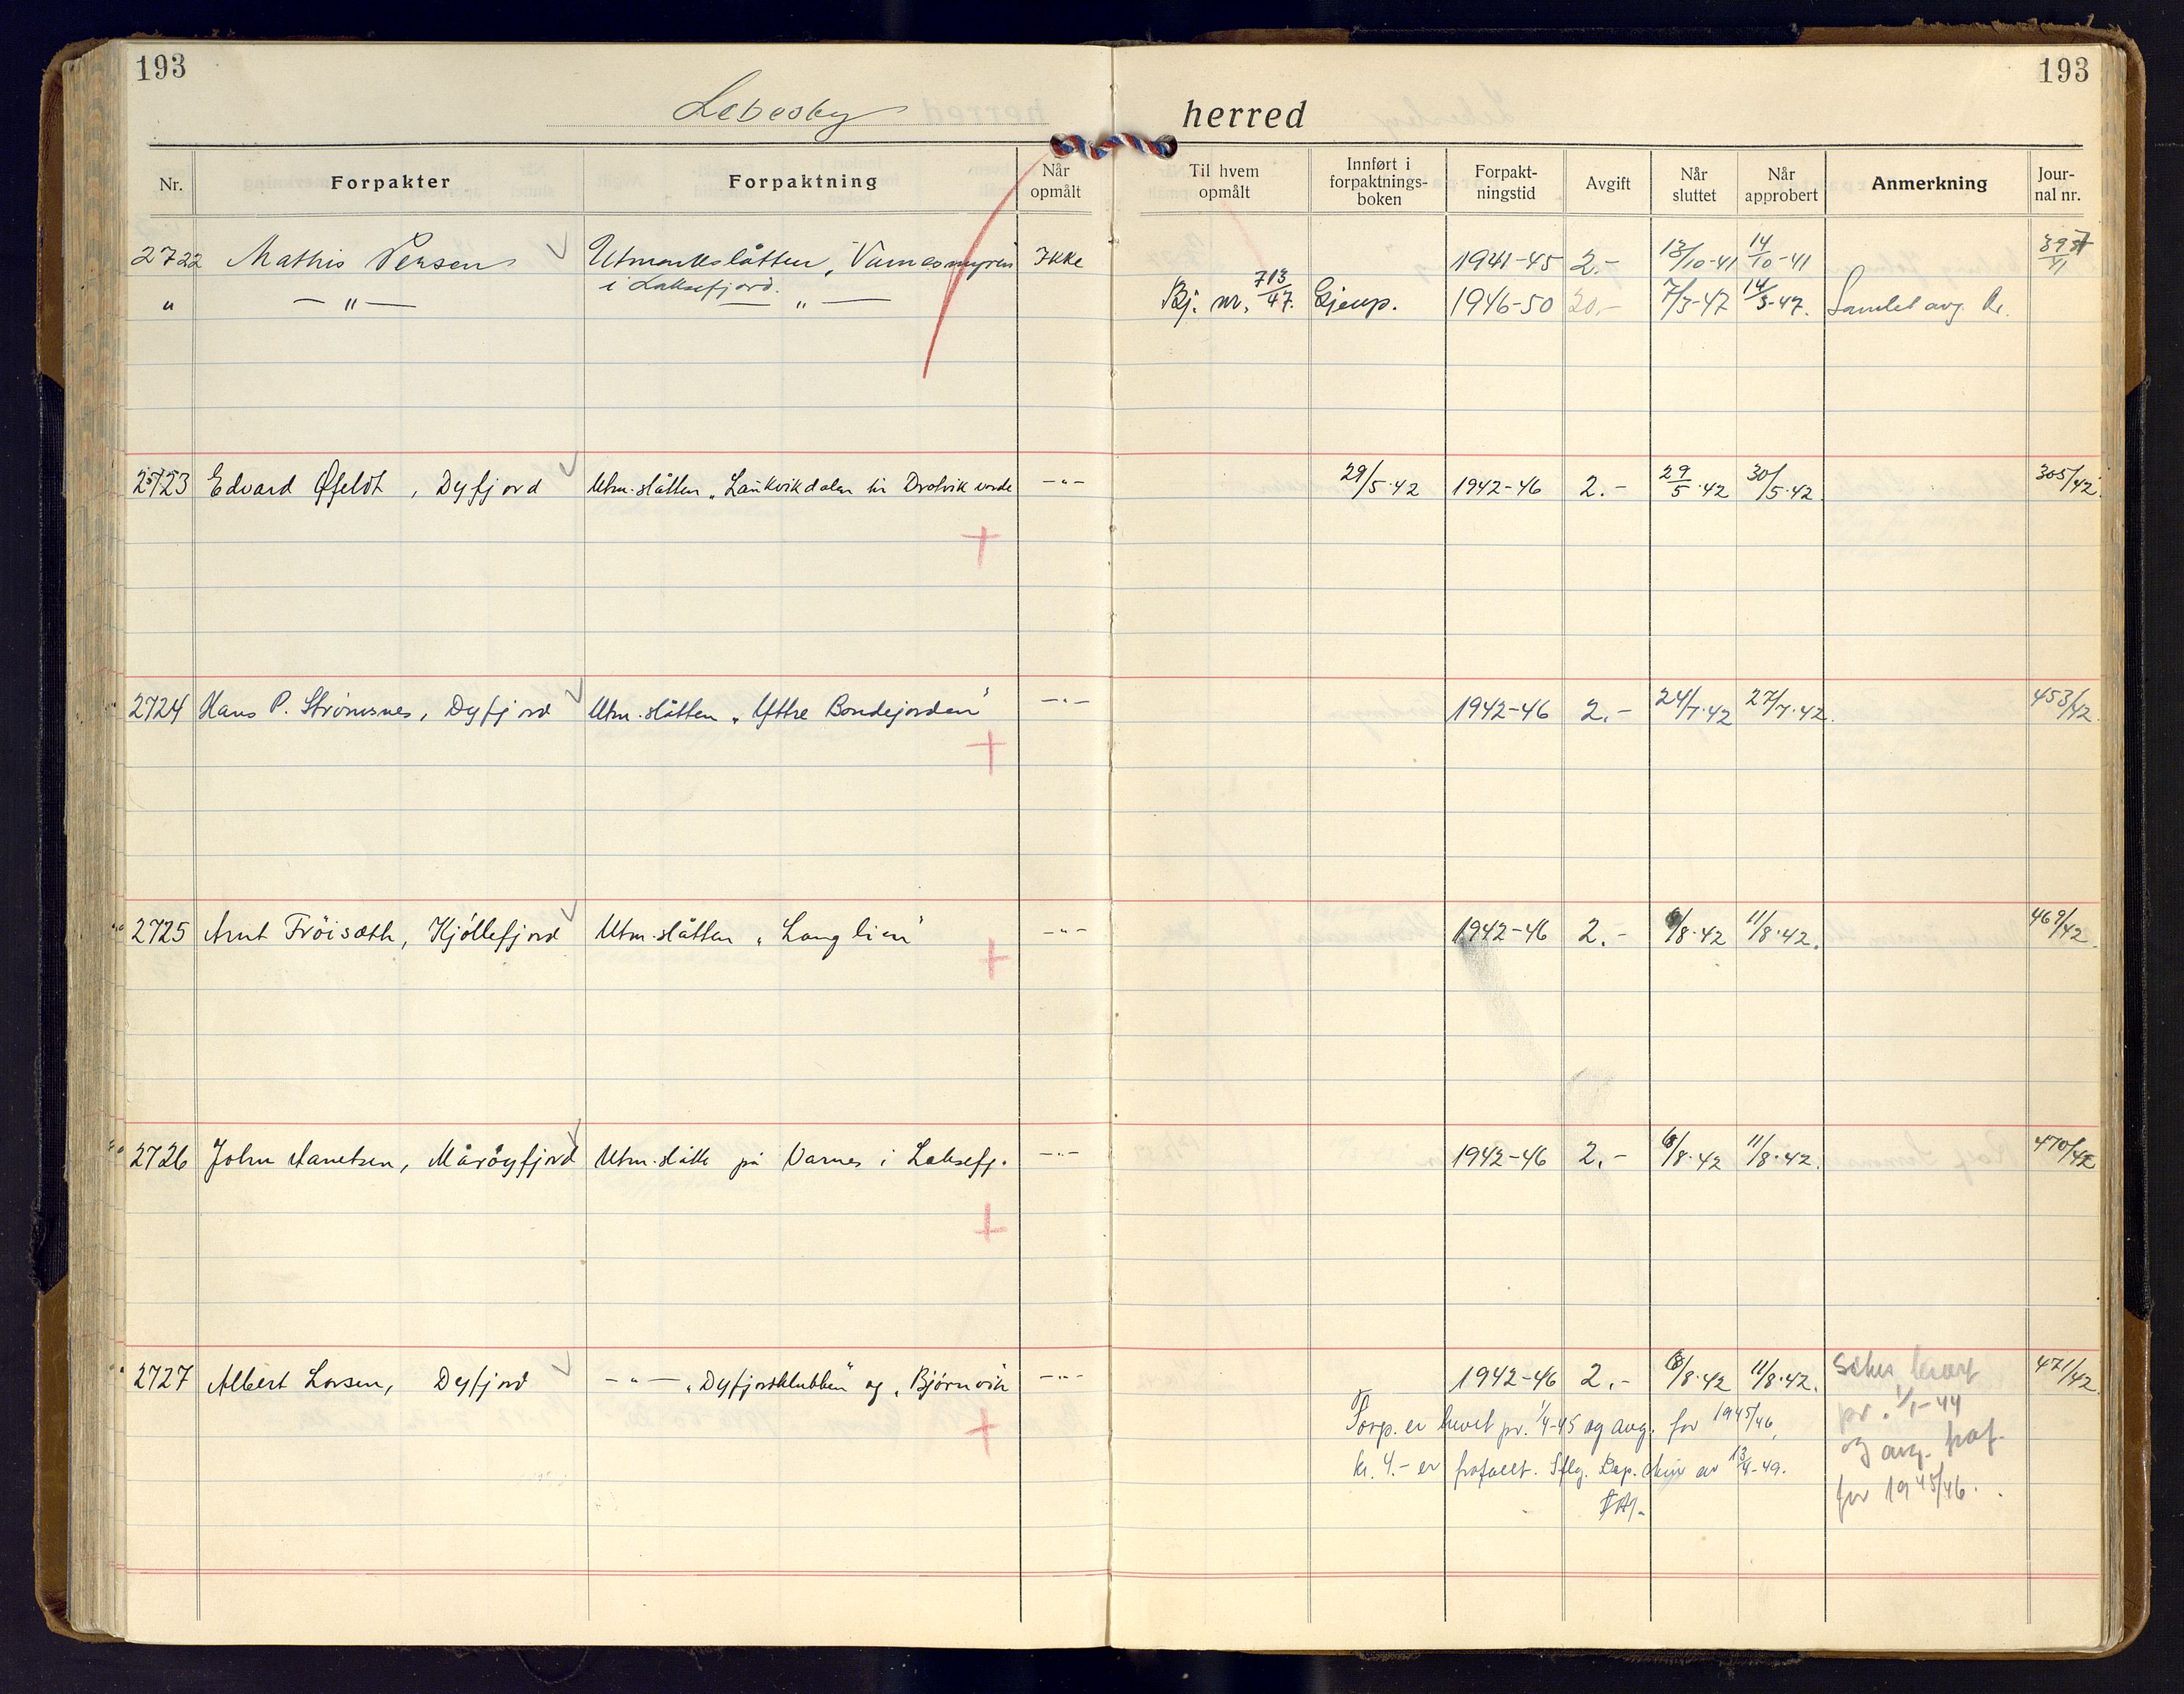 193
193
Lebesby herred
Nr. Forpakter Forpaktning Når opmålt Til hvem opmålt Innført i forpaktnings-boken Forpakt-ningstid Avgift Når sluttet Når approbert Anmerkning Jour-nal nr.
2722 Mathis Persen Utmarkslåtten „Varnesmyren Ikke 1941-45 2.- 13/10-41 14/10-41
i Laksefjord.
" —"— —"— Bj. nr. 713/47. Gjenp. 1946-50 20.- 7/3-47 14/3-47. Samlet avg.
2723 Edvard Øfeldt, Dyfjord Utm.slåtten „Laukvikdalen til Drotvik varde —"— 29/5.42 1942-46 2.- 29/5.42 30/5.42. 305/42.
2724 Hans P. Strømsnes, Dyfjord Utm.slåtten „Yttre Bondejorden" —"— 1942-46 2.- 24/7.42 27/7.42. 453/42.
2725 Arnt Fröisæth, Kjöllefjord Utm.slåtten „Langlien" —"— 1942-46 2.- 6/8.42 11/8.42. 469/42.
2726 John Aanetsen, Måröyfjord Utm.slåtte på Varnes i Laksefj. —"— 1942-46 2.- 6/8.42 11/8.42. 470/42
2727 Albert Larsen, Dyfjord —"— „Dyfjordklubben" og „Bjørnvik —"— 1942-46 2.- 8/8.42 11/8.42. 471/42.
pr. 1/1-44
Forp. er hevet pr. 1/4-45 og avg. for 1945/46,
og avg. fraf.
kr. 4.- er frafallt. Iflg. Dep. skriv av 13/4-49.
for 1945/46.